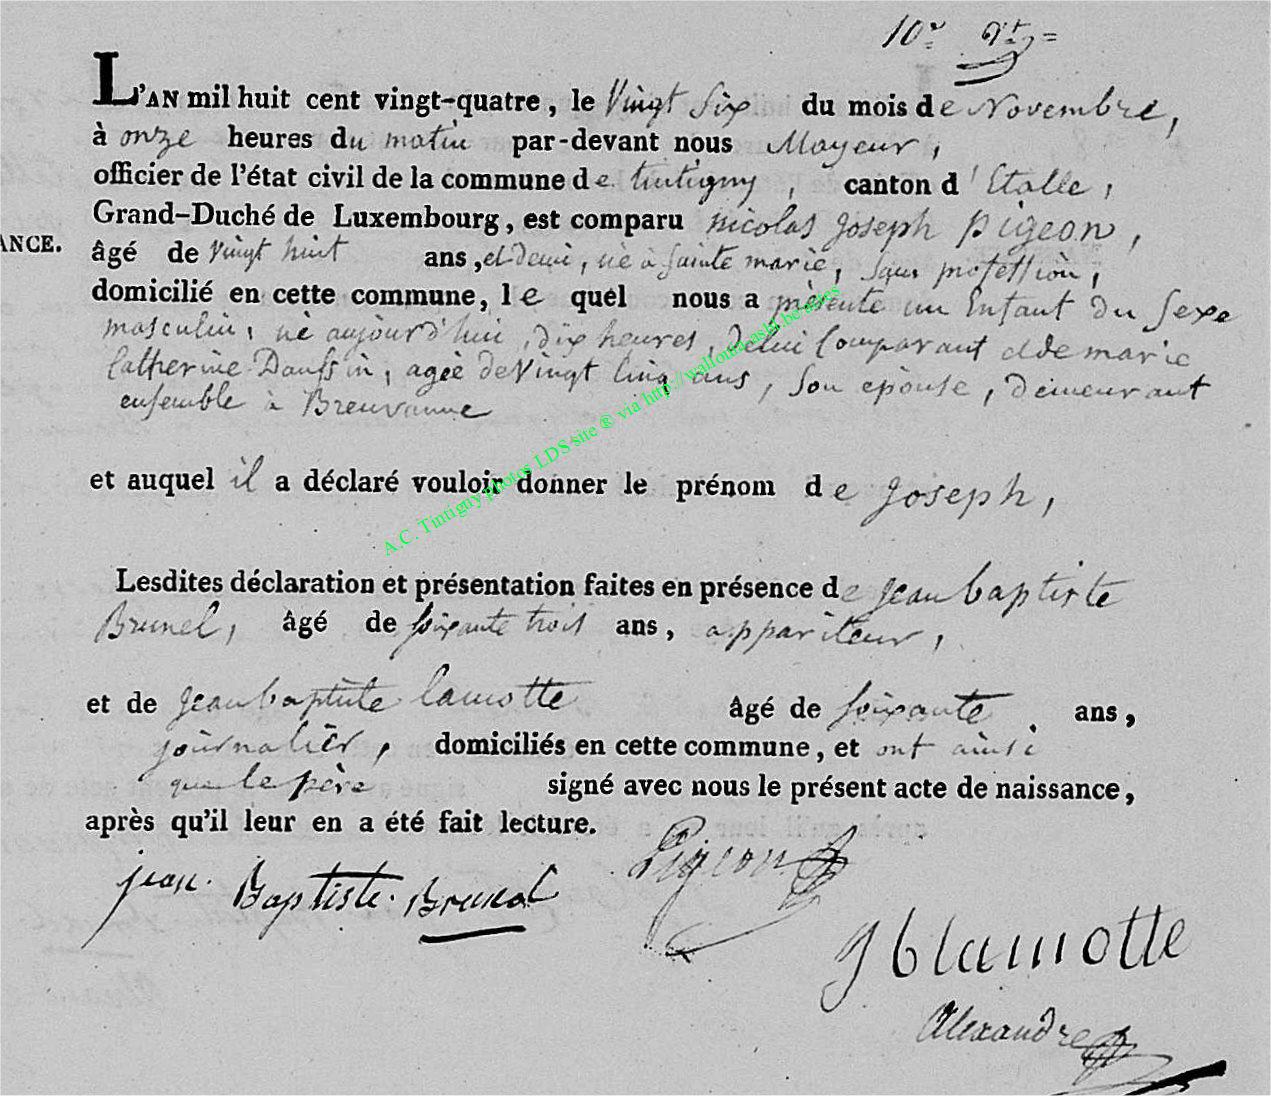 10.e
L'AN mil huit cent vingt-quatre, le Vingt Six du mois de Novembre,
à onze heures du matin par-devant nous Mayeur,
officier de l'état civil de la commune de tintigny, canton d'Etalle,
Grand-Duché de Luxembourg, est comparu nicolas joseph pigeon,
ANCE.
âgé de vingt huit ans, et demi, né à Sainte marie, Sans profession,
domicilié en cette commune, le quel nous a présenté un Enfant du Sexe
masculin, né aujourd'hui, dix heures, de lui Comparant et de marie
Catherine Daussin, agée de Vingt Cinq ans, Son epouse, Demeurant
ensemble à Breuvanne
et auquel il a déclaré vouloir donner le prénom de joseph,
A.C. Tintigny photos LDS site ® via http://wallonia-asbl.be/actes
Lesdites déclaration et présentation faites en présence de jean baptiste
Brunel, âgé de soixante trois ans, appariteur,
et de jean baptiste lamotte âgé de soixante ans,
journalier, domiciliés en cette commune, et ont ainsi
que le père signé avec nous le présent acte de naissance,
après qu'il leur en a été fait lecture.
jean Baptiste Brunel
Pigeon
J b lamotte
Alexandre